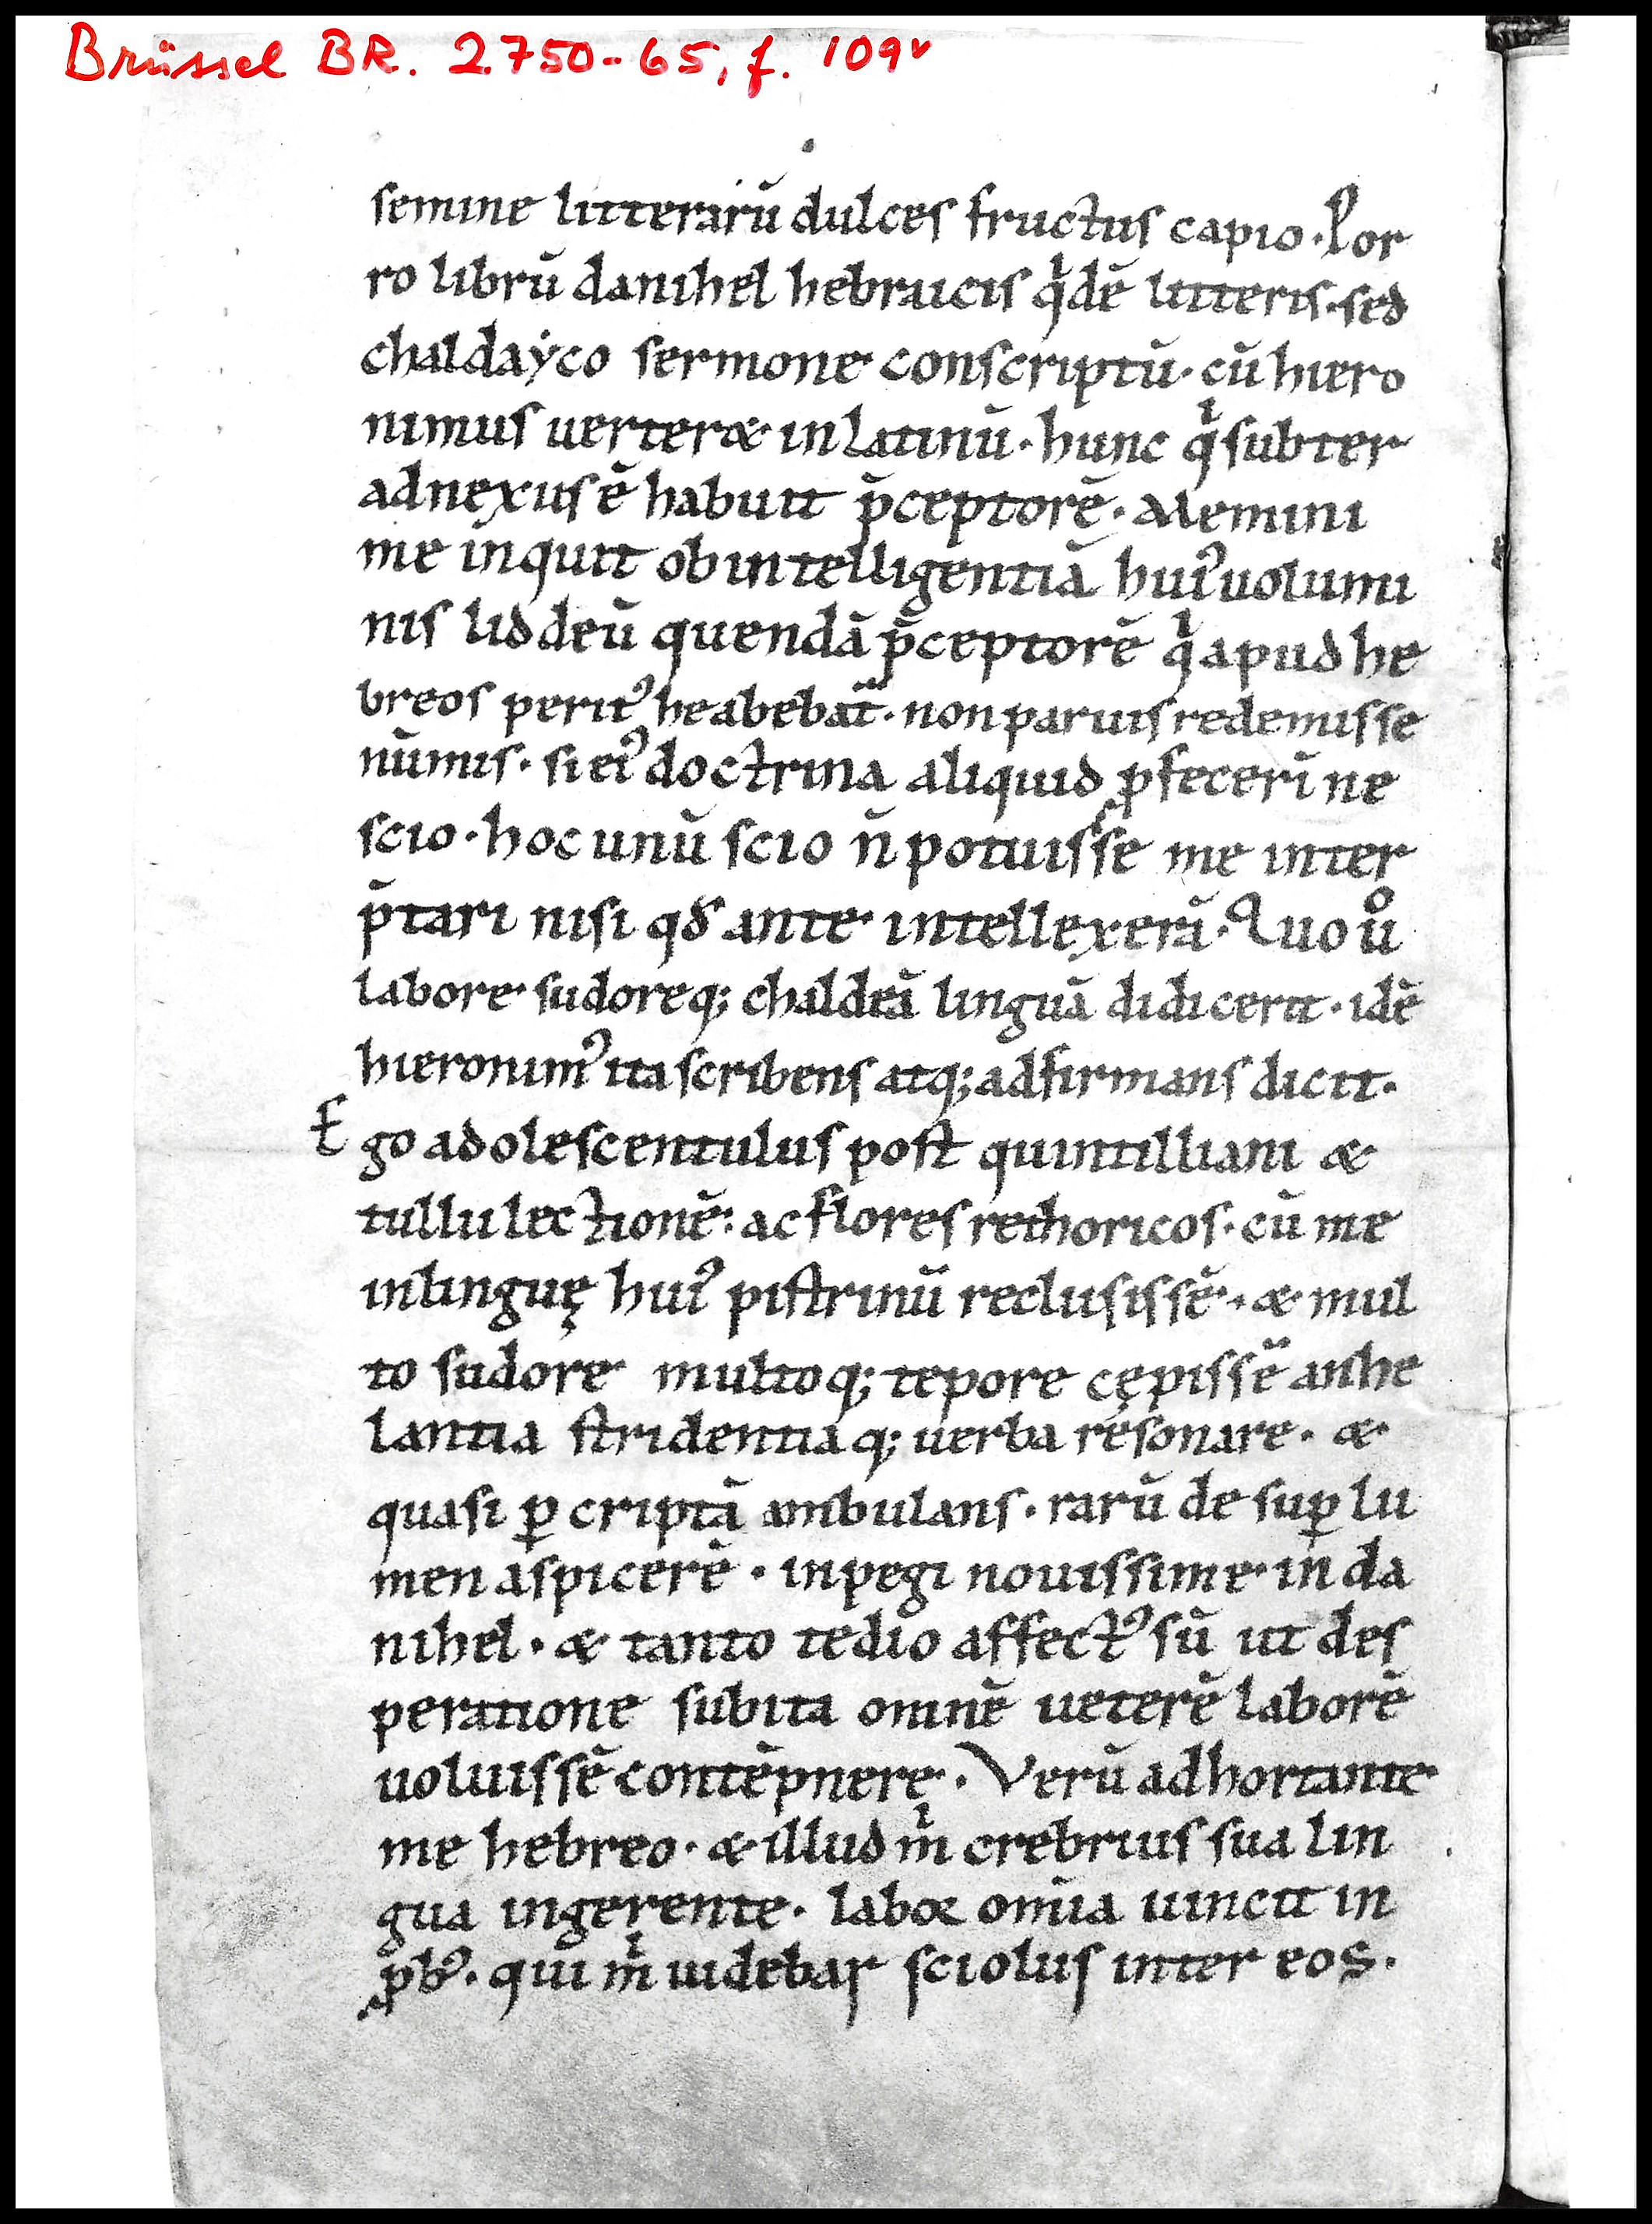 Brüssel BR. 2750-65, f. 109v
semine litterarū dulces fructus capio · Por
ro librū danihel hebraicis qͥdē litteris · sed
chaldaẏco sermone conscriptū · cū hiero
nimus uerteræ in latinū · hunc qͥ subter
adnexus ē habuit p̄ceptorē · Memini
me inquit ob intelligentiā huiꝰ uolumi
nis liddeū quendā p̄ceptorē qͥ apud he
breos peritꝰ heabebat̄ · non paruis redemisse
nūmis · si eiꝰ doctrina aliquid ꝓfecerī ne
scio · hoc unū scio n̄ potuisse me inter
p̄tari nisi qđ ante intellexerā · Quo uͦ
labore sudoreq; chaldeā linguā didicerit · idē
hieronimꝰ ita scribens atq; adfirmans dicit ·
Ego adolescentulus post quintilliani &
tullii lectionē : ac flores rethoricos · cū me
in linguę huiꝰ pistrinū reclusissē · & mul
to sudore multoq; tepore cępissē anhe
lantia stridentiaq; uerba resonare · &
quasi ꝑ criptā ambulans · rarū desuꝑ lu
men aspicerē · inpegi nouissime in da
nihel · & tanto tedio affectꝰ sū ut des
peratione subita omnē ueterē laborē
uoluissē contēpnere · Verū adhortante
me hebreo · & illud mͥ crebrius sua lin
gua ingerente · labor om̄ia uincit in
ꝓbꝰ · qui mͥ uidebar sciolus inter eos ·